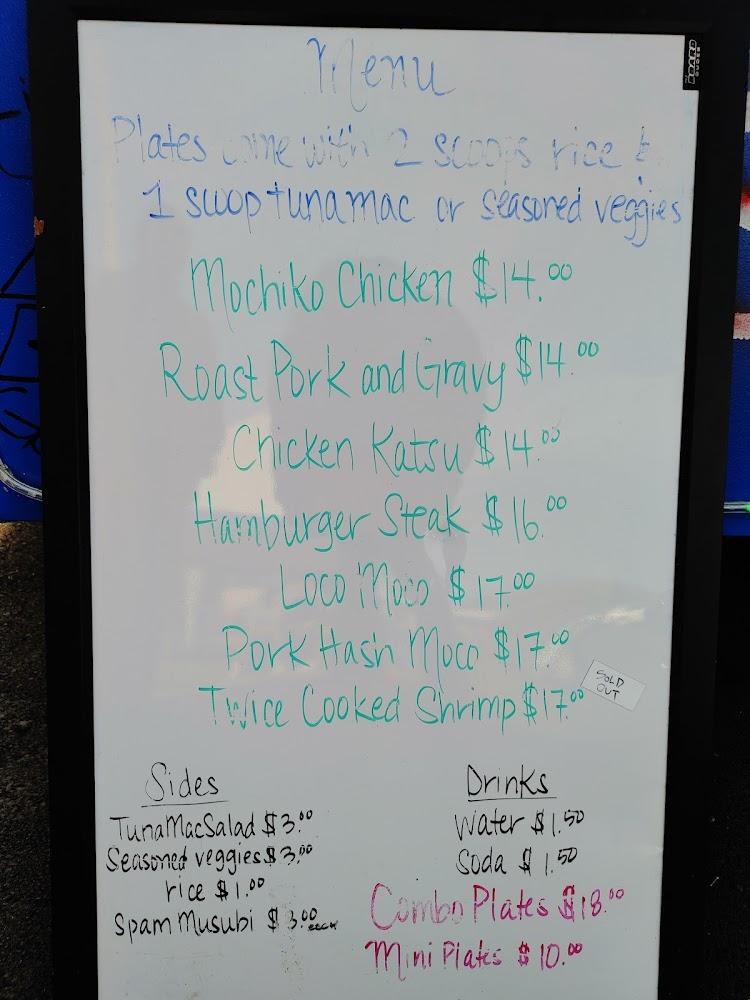 Menu
Plates come with 2 scoops rice &
1 swop tuna mac or seasoned veggies
Mochiko Chicken $14.00
Roast Pork and Gravy $14.00
Chicken Katsu $14.00
Hamburger Steak $16.00
Loco Moco $17.00
Pork Hash Moco $17.00
Twice Cooked Shrimp $17.00
SOLD
OUT
Sides
TunaMacSalad $3.00
Seasoned veggies $3.00
rice $1.00
Spam Musubi $3.00 each
Drinks
Water $1.50
Soda $1.50
Combo Plates $18.00
Mini Plates $10.00